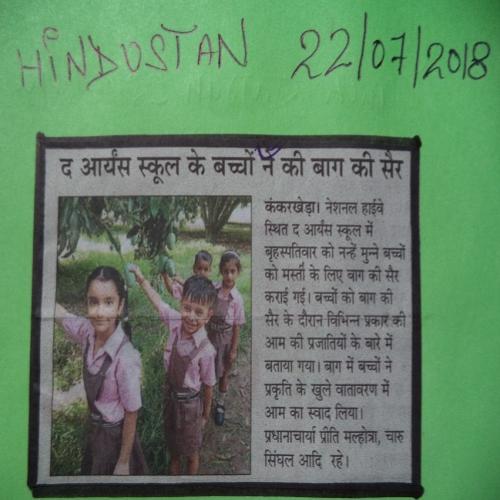 HINDUSTAN 22/07/2018
द आर्यंस स्कूल के बच्चों ने की बाग की सैर
कंकरखेड़ा। नेशनल हाईवे
स्थित द आर्यंस स्कूल में
बृहस्पतिवार को नन्हें मुन्ने बच्चों
को मस्ती के लिए बाग की सैर
कराई गई। बच्चों को बाग की
सैर के दौरान विभिन्न प्रकार की
आम की प्रजातियों के बारे में
बताया गया। बाग में बच्चों ने
प्रकृति के खुले वातावरण में
आम का स्वाद लिया।
प्रधानाचार्या प्रीति मल्होत्रा, चारु
सिंघल आदि रहे।